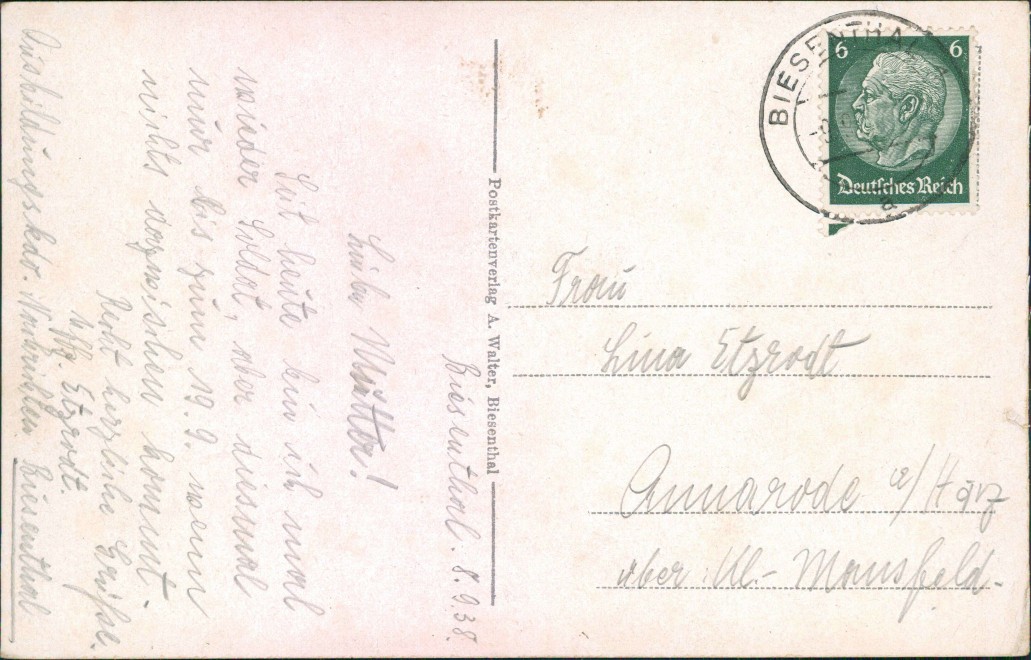 Biesenthal. 8. 9. 38.
Liebe Mutter!
Seit heute bin ich mal
wieder Soldat, aber diesmal
nur bis zum 19. 9. wenn
nichts dazwischen kommt.
Recht herzliche Grüße
Uffz. Etzrodt.
Ausbildungskdr. Nachrichten Biesenthal
Postkartenverlag A. Walter, Biesenthal
BIESENTHAL
a
6 6
Deutsches Reich
Frau
Lina Etzrodt
Annarode a/Harz
über Kl.- Mansfeld.